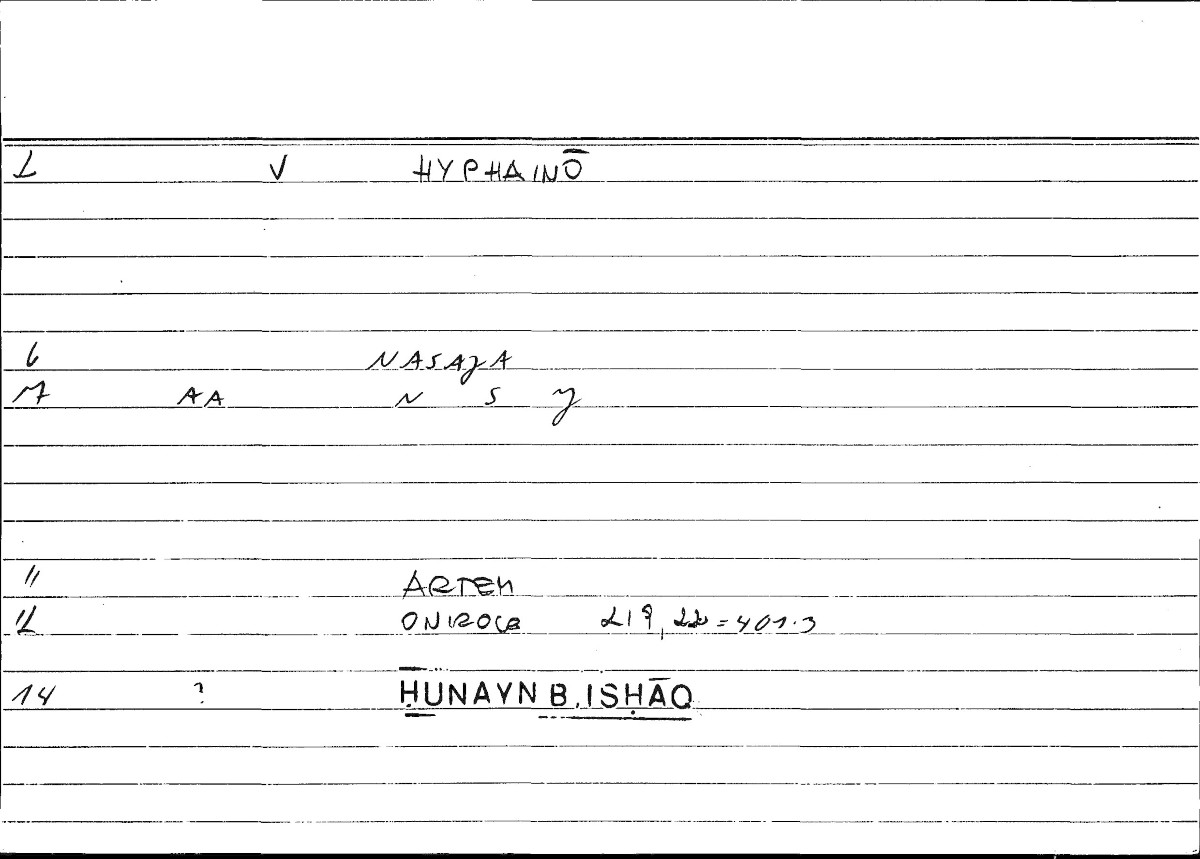 1 V HYPHAINŌ
6 NASAJA
7 AA N S J
11 ARTEM
12 ONIROCR 219,22=401.3
14 ? ḤUNAYN B. ISḤĀQ